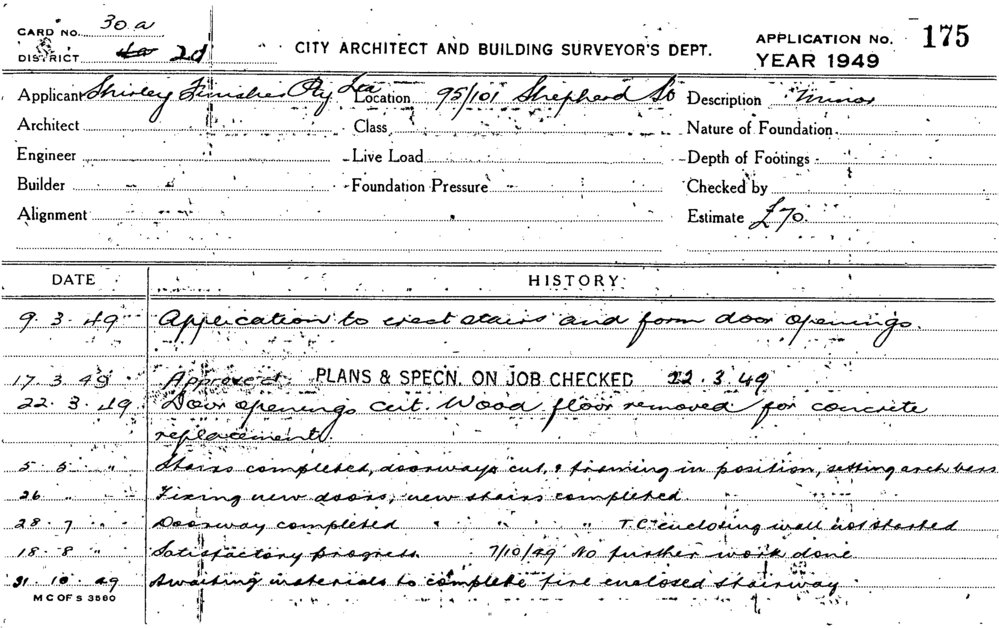 CARD NO. 30a
DISTRICT 2d
CITY ARCHITECT AND BUILDING SURVEYOR'S DEPT.
APPLICATION NO. 175
YEAR 1949
Applicant Shirley Finisher Pty Ltd Location 95/101 Shepherd St Description Minor
Architect Class Nature of Foundation
Engineer Live Load Depth of Footings
Builder Foundation Pressure Checked by
Alignment Estimate £70.
DATE HISTORY
9.3.49 Application to erect stairs and form door openings.
17.3.49 Approved. PLANS & SPECN. ON JOB CHECKED 22.3.49
22.3.49 Door openings cut. Wood floor removed for concrete
replacement.
5.5 " Stairs completed, doorways cut, & framing in position, setting arch bars
26 " Fixing new doors, new stairs completed.
28.7 " Doorway completed " " " T.C. enclosing wall not started
18.8 " Satisfactory progress 7/10/49 No further work done
31.10.49 Awaiting materials to complete fire enclosed stairway.
M C OF S 3580